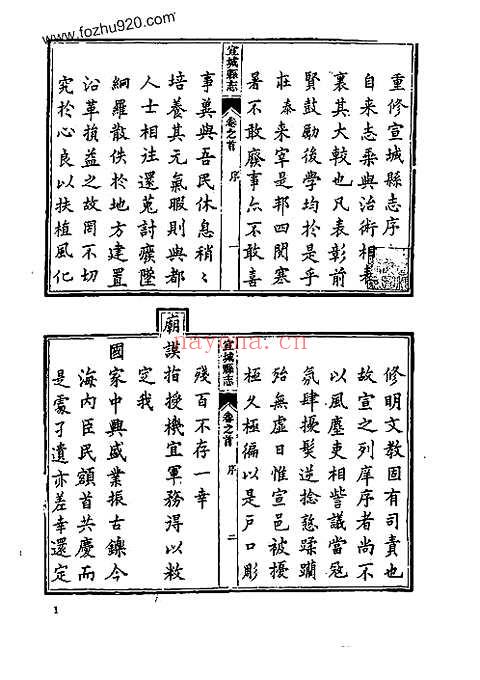 www.fozhu920.com
重修宣城縣志序
自来志乘與治術相表
裏其大較也凡表彰前
賢鼓勵後學均於是乎
在泰来宰是邦四閱寒
暑不敢廢事亦不敢喜
宣城縣志
卷之首
序
一
事冀與吾民休息稍〻
培養其元氣暇則與都
人士相往還蒐討癈墜
網羅散佚於地方建置
沿革損益之故罔不切
究於心良以扶植風化
修明文教固有司責也
故宣之列庠序者尚不
以風塵吏相訾議當寇
氛肆擾髮逆捻愍蹂躪
殆無虛日惟宣邑被擾
極久極徧以是户口彫
宣城縣志
卷之首
序
二
殘百不存一幸
廟謨指授機宜軍務得以敉
定我
國家中興盛業振古鑠今
海内臣民額首共慶而
是處孑遺亦差幸還定
nayona.cn
www.fozhu920.com
1